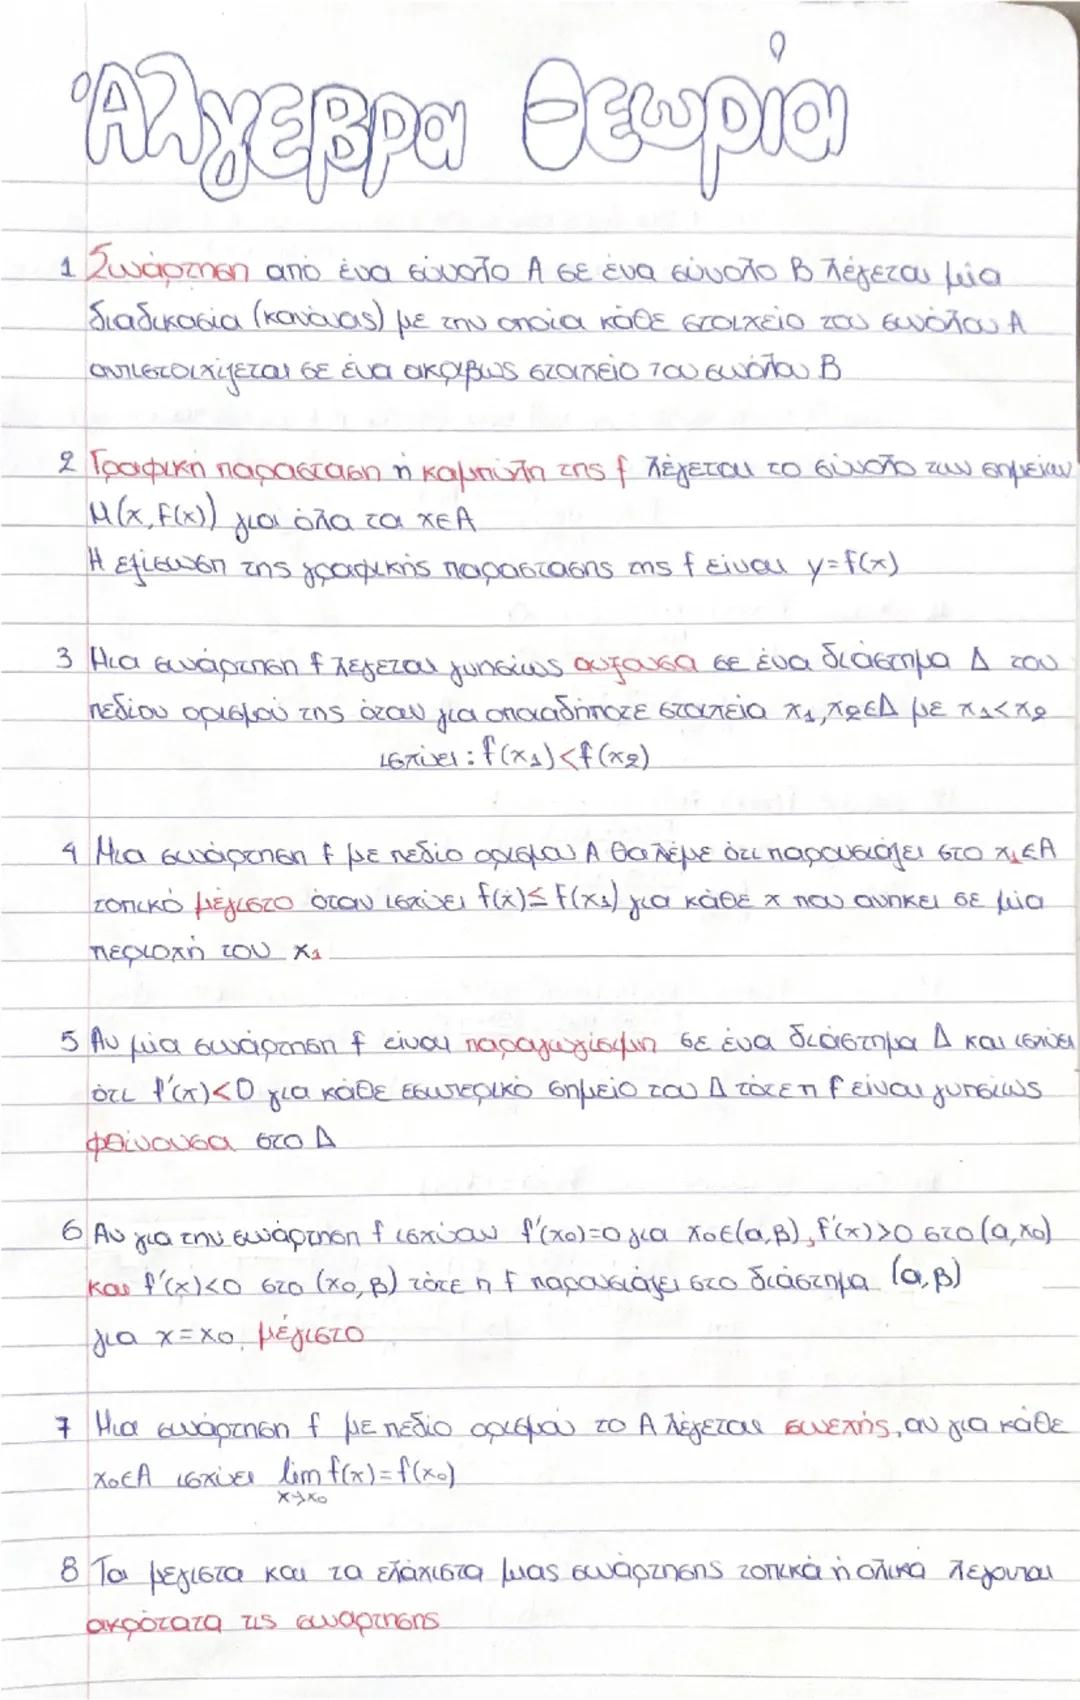 Άλγεβρα Θεωρία
1 Συνάρτηση από ένα σύνολο Α σε ένα σύνολο Β λέγεται μία
διαδικασία (κανόνας) με την οποία κάθε στοιχείο του συνόλου Α
αντιστοιχίζεται σε ένα ακριβώς στοιχείο του συνόλου Β
2 Γραφική παράσταση ή καμπύλη της f λέγεται το σύνολο των σημείων
Μ(x, f(x)) για όλα τα x∈A
Η εξίσωση της γραφικής παράστασης της f είναι y=f(x)
3 Μια συνάρτηση f λέγεται γνησίως αύξουσα σε ένα διάστημα Δ του
πεδίου ορισμού της όταν για οποιαδήποτε στοιχεία x₁,x₂∈Δ με x₁<x₂
ισχύει: f(x₁)<f(x₂)
4 Μια συνάρτηση f με πεδίο ορισμού Α θα λέμε ότι παρουσιάζει στο x₁∈A
τοπικό μέγιστο όταν ισχύει f(x)≤f(x₁) για κάθε x που ανήκει σε μία
περιοχή του x₁
5 Αν μία συνάρτηση f είναι παραγωγίσιμη σε ένα διάστημα Δ και ισχύει
ότι f'(x)<0 για κάθε εσωτερικό σημείο του Δ τότε η f είναι γνησίως
φθίνουσα στο Δ
6 Αν για την συνάρτηση f ισχύουν f'(x₀)=0 για x₀∈(α,β), f'(x)>0 στο (α,x₀)
και f'(x)<0 στο (x₀,β) τότε η f παρουσιάζει στο διάστημα (α,β)
για x=x₀, μέγιστο
7 Μια συνάρτηση f με πεδίο ορισμού το Α λέγεται συνεχής, αν για κάθε
x₀∈A ισχύει lim f(x)=f(x₀)
x→x₀
8 Τα μέγιστα και τα ελάχιστα μιας συνάρτησης τοπικά ή ολικά λέγονται
ακρότατα τις συνάρτησης